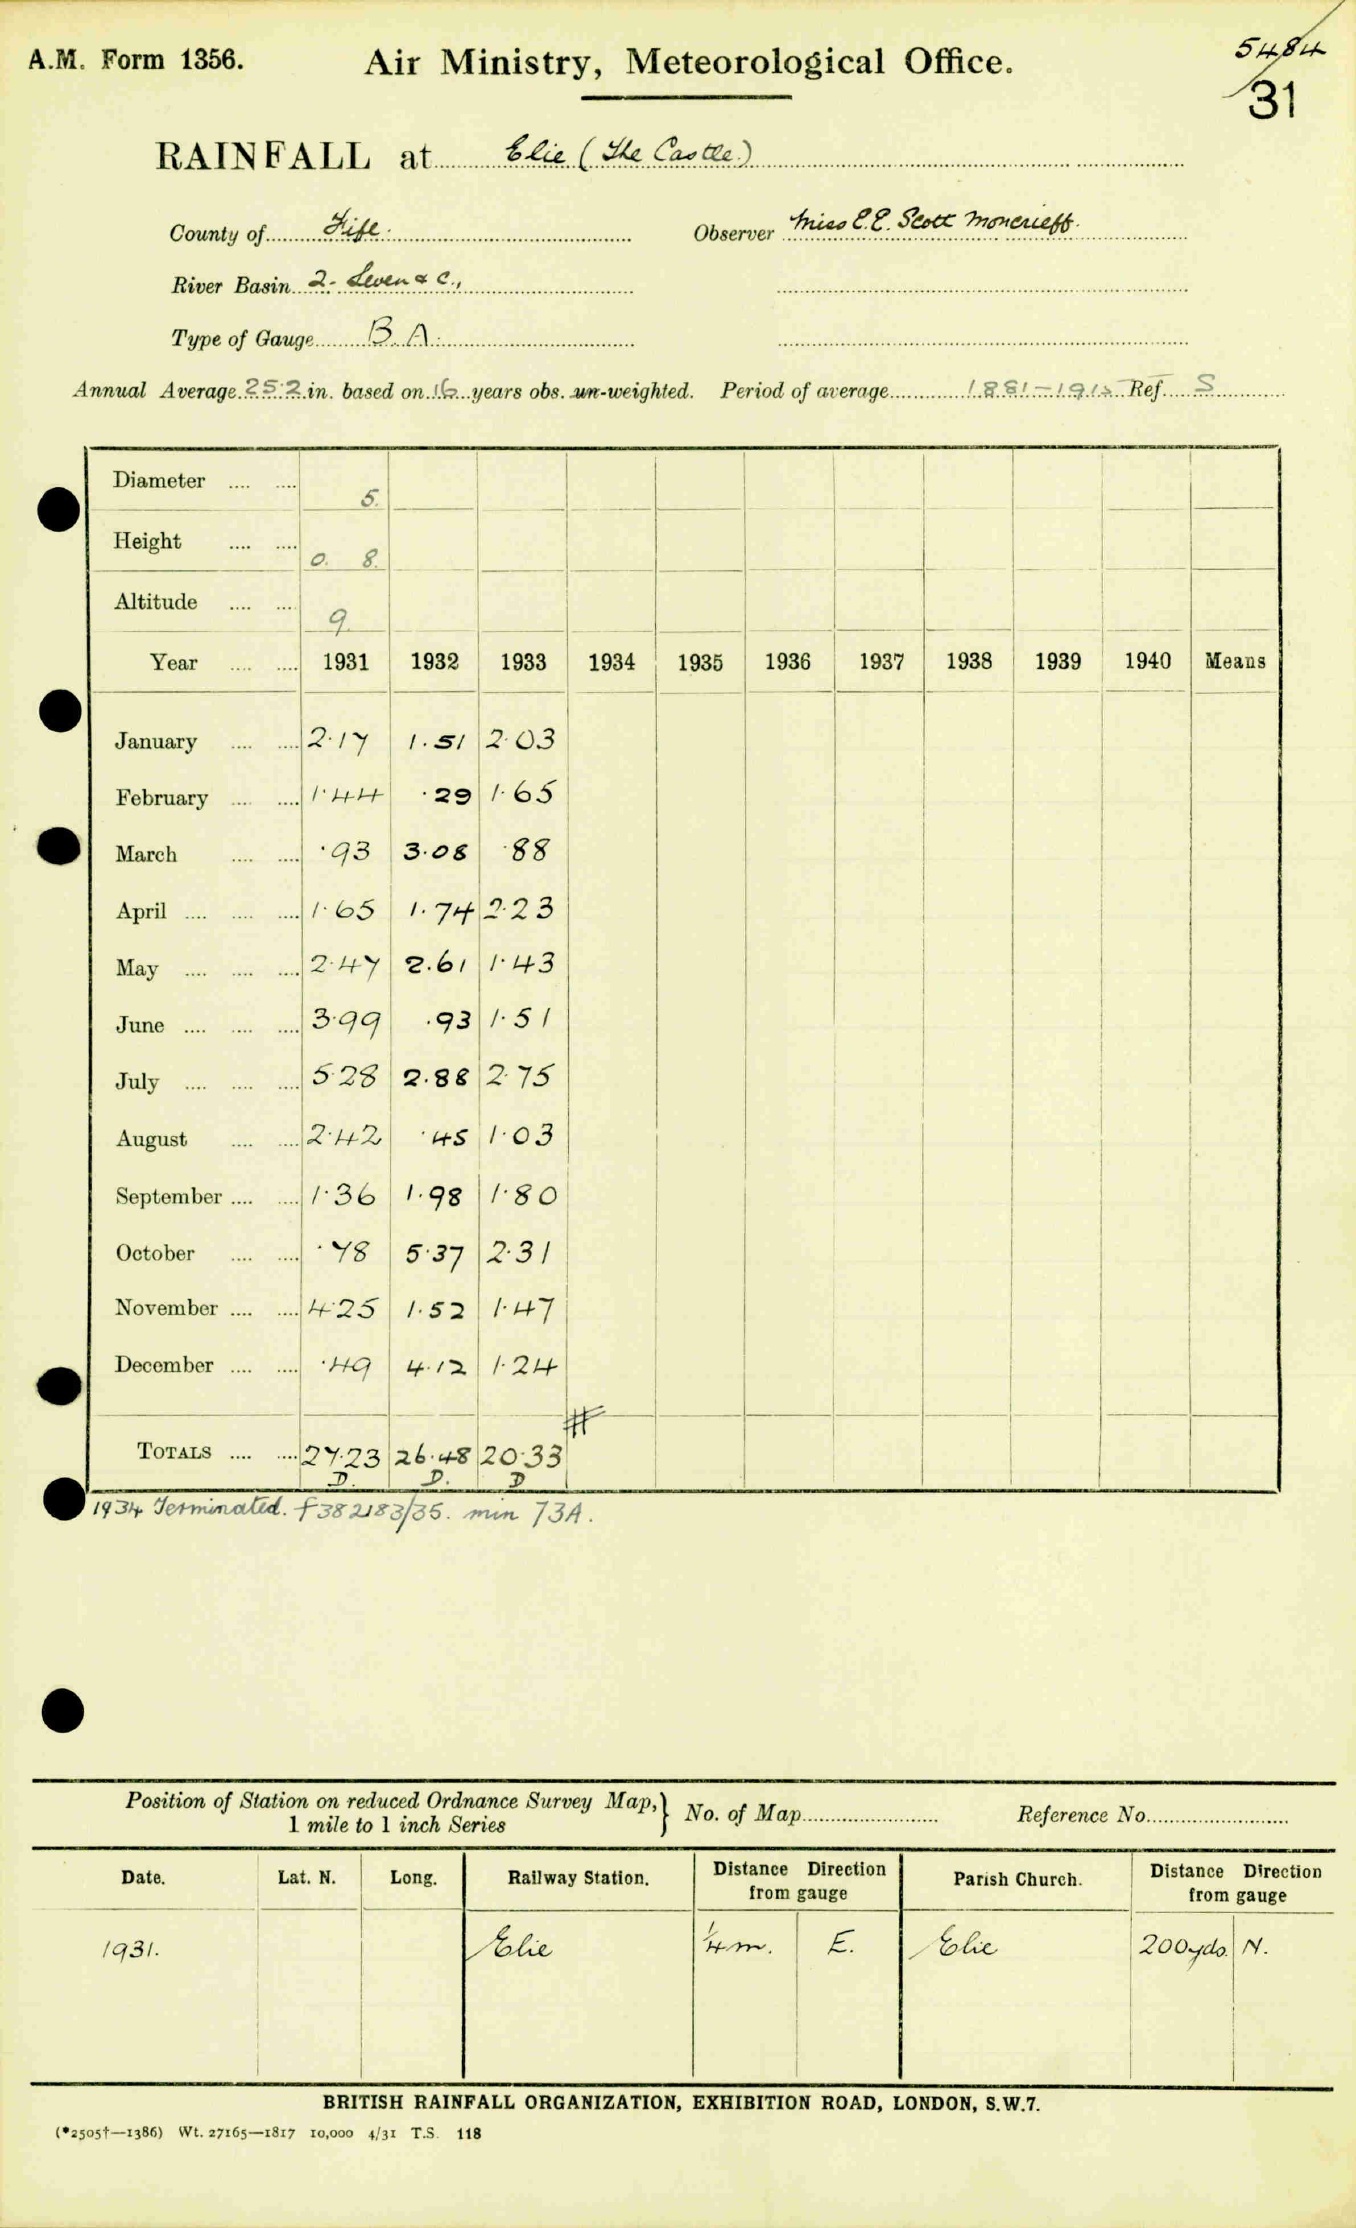 A.M. Form 1356.
Air Ministry, Meteorological Office.
5484
31
RAINFALL at Elie (The Castle)
County of Fife. Observer Miss E.E. Scott Moncrieff.
River Basin 2. Leven & c.,
Type of Gauge B.A.
Annual Average 25.2 in. based on 16 years obs. un-weighted. Period of average 1881-1915 Ref. S
Diameter .... .... 5.
Height .... .... 0. 8.
Altitude .... .... 9.
Year .... .... 1931 1932 1933 1934 1935 1936 1937 1938 1939 1940 Means
January .... .... 2.17 1.51 2.03
February .... .... 1.44 .29 1.65
March .... .... .93 3.08 .88
April .... .... .... 1.65 1.74 2.23
May .... .... .... 2.47 2.61 1.43
June .... .... .... 3.99 .93 1.51
July .... .... .... 5.28 2.88 2.75
August .... .... 2.42 .45 1.03
September .... .... 1.36 1.98 1.80
October .... .... .78 5.37 2.31
November .... .... 4.25 1.52 1.47
December .... .... .49 4.12 1.24
TOTALS .... .... 27.23 26.48 20.33
D. D. D
1934 Terminated. f382183/35. min 73A.
Position of Station on reduced Ordnance Survey Map,} No. of Map Reference No.
1 mile to 1 inch Series
Date. Lat. N. Long. Railway Station. Distance Direction from gauge Parish Church. Distance Direction from gauge
1931. Elie ¼ m. E. Elie 200yds. N.
BRITISH RAINFALL ORGANIZATION, EXHIBITION ROAD, LONDON, S.W.7.
(*2505†—1386) Wt. 27165—1817 10,000 4/31 T.S. 118